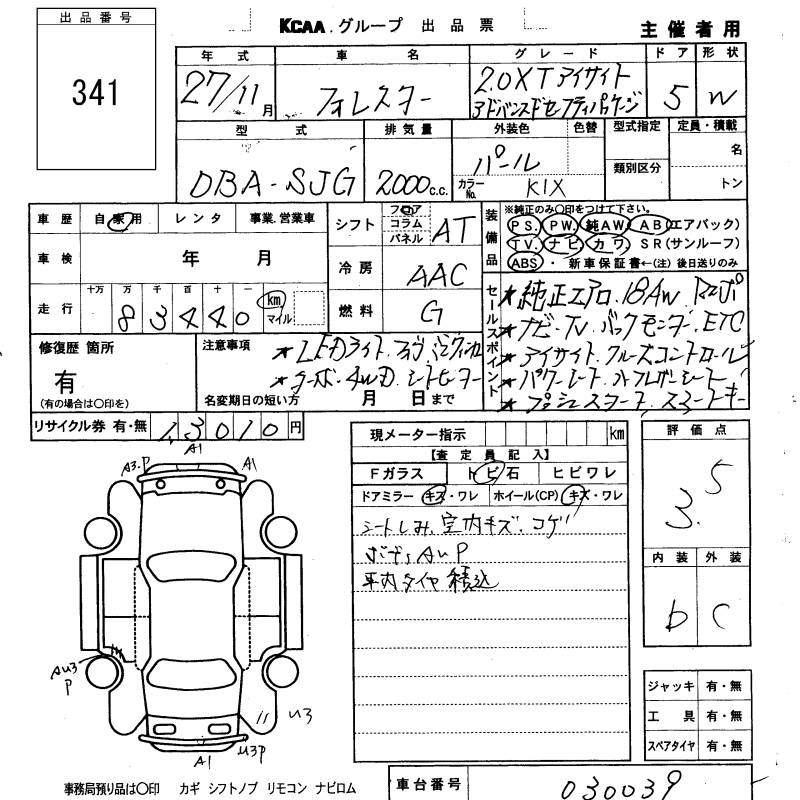 出品番号
341
KCAA.グループ 出品票
主催者用
年式 車名 グレード ドア 形状
27/11月 フォレスター 2.0XTアイサイト
アドバンスドセーフティパッケージ 5 W
型式 排気量 外装色 色替 型式指定 定員・積載
DBA-SJG 2000c.c. パール 名
カラーNo. K1X 類別区分 トン
車歴 自家用 レンタ 事業.営業車
シフト フロア コラム パネル AT
装備品 ※純正のみ○印をつけて下さい。
PS. PW. 純AW. AB(エアバック)
TV. ナビ・カワ. SR(サンルーフ)
ABS ・ 新車保証書←(注) 後日送りのみ
車検 年 月
冷房 AAC
走行 十万 万 千 百 十 一 km マイル
83440
燃料 G
セールスポイント
★純正エアロ.18AW
★ナビ・TV.バックモニター.ETC
★アイサイト.クルーズコントロール
★パワーシート.ハーフレザーシート
★プッシュスタート.スマートキー
修復歴 箇所
有
(有の場合は○印を)
注意事項
★LEDライト.
★ターボ.4WD.シートヒーター
名変期日の短い方 月 日まで
リサイクル券 有・無 13010円
現メーター指示 km
【査定員記入】
Fガラス トビ石 ヒビワレ
ドアミラー キズ・ワレ ホイール(CP) キズ・ワレ
シートしみ.室内キズ.コゲ
ボディAUP
車内タイヤ積込
評価点
3.5
内装 外装
b C
A1
A3.P A1
AU3
P
U3
A1 U3P
ジャッキ 有・無
工具 有・無
スペアタイヤ 有・無
事務局預り品は○印 カギ シフトノブ リモコン ナビロム
車台番号 030039